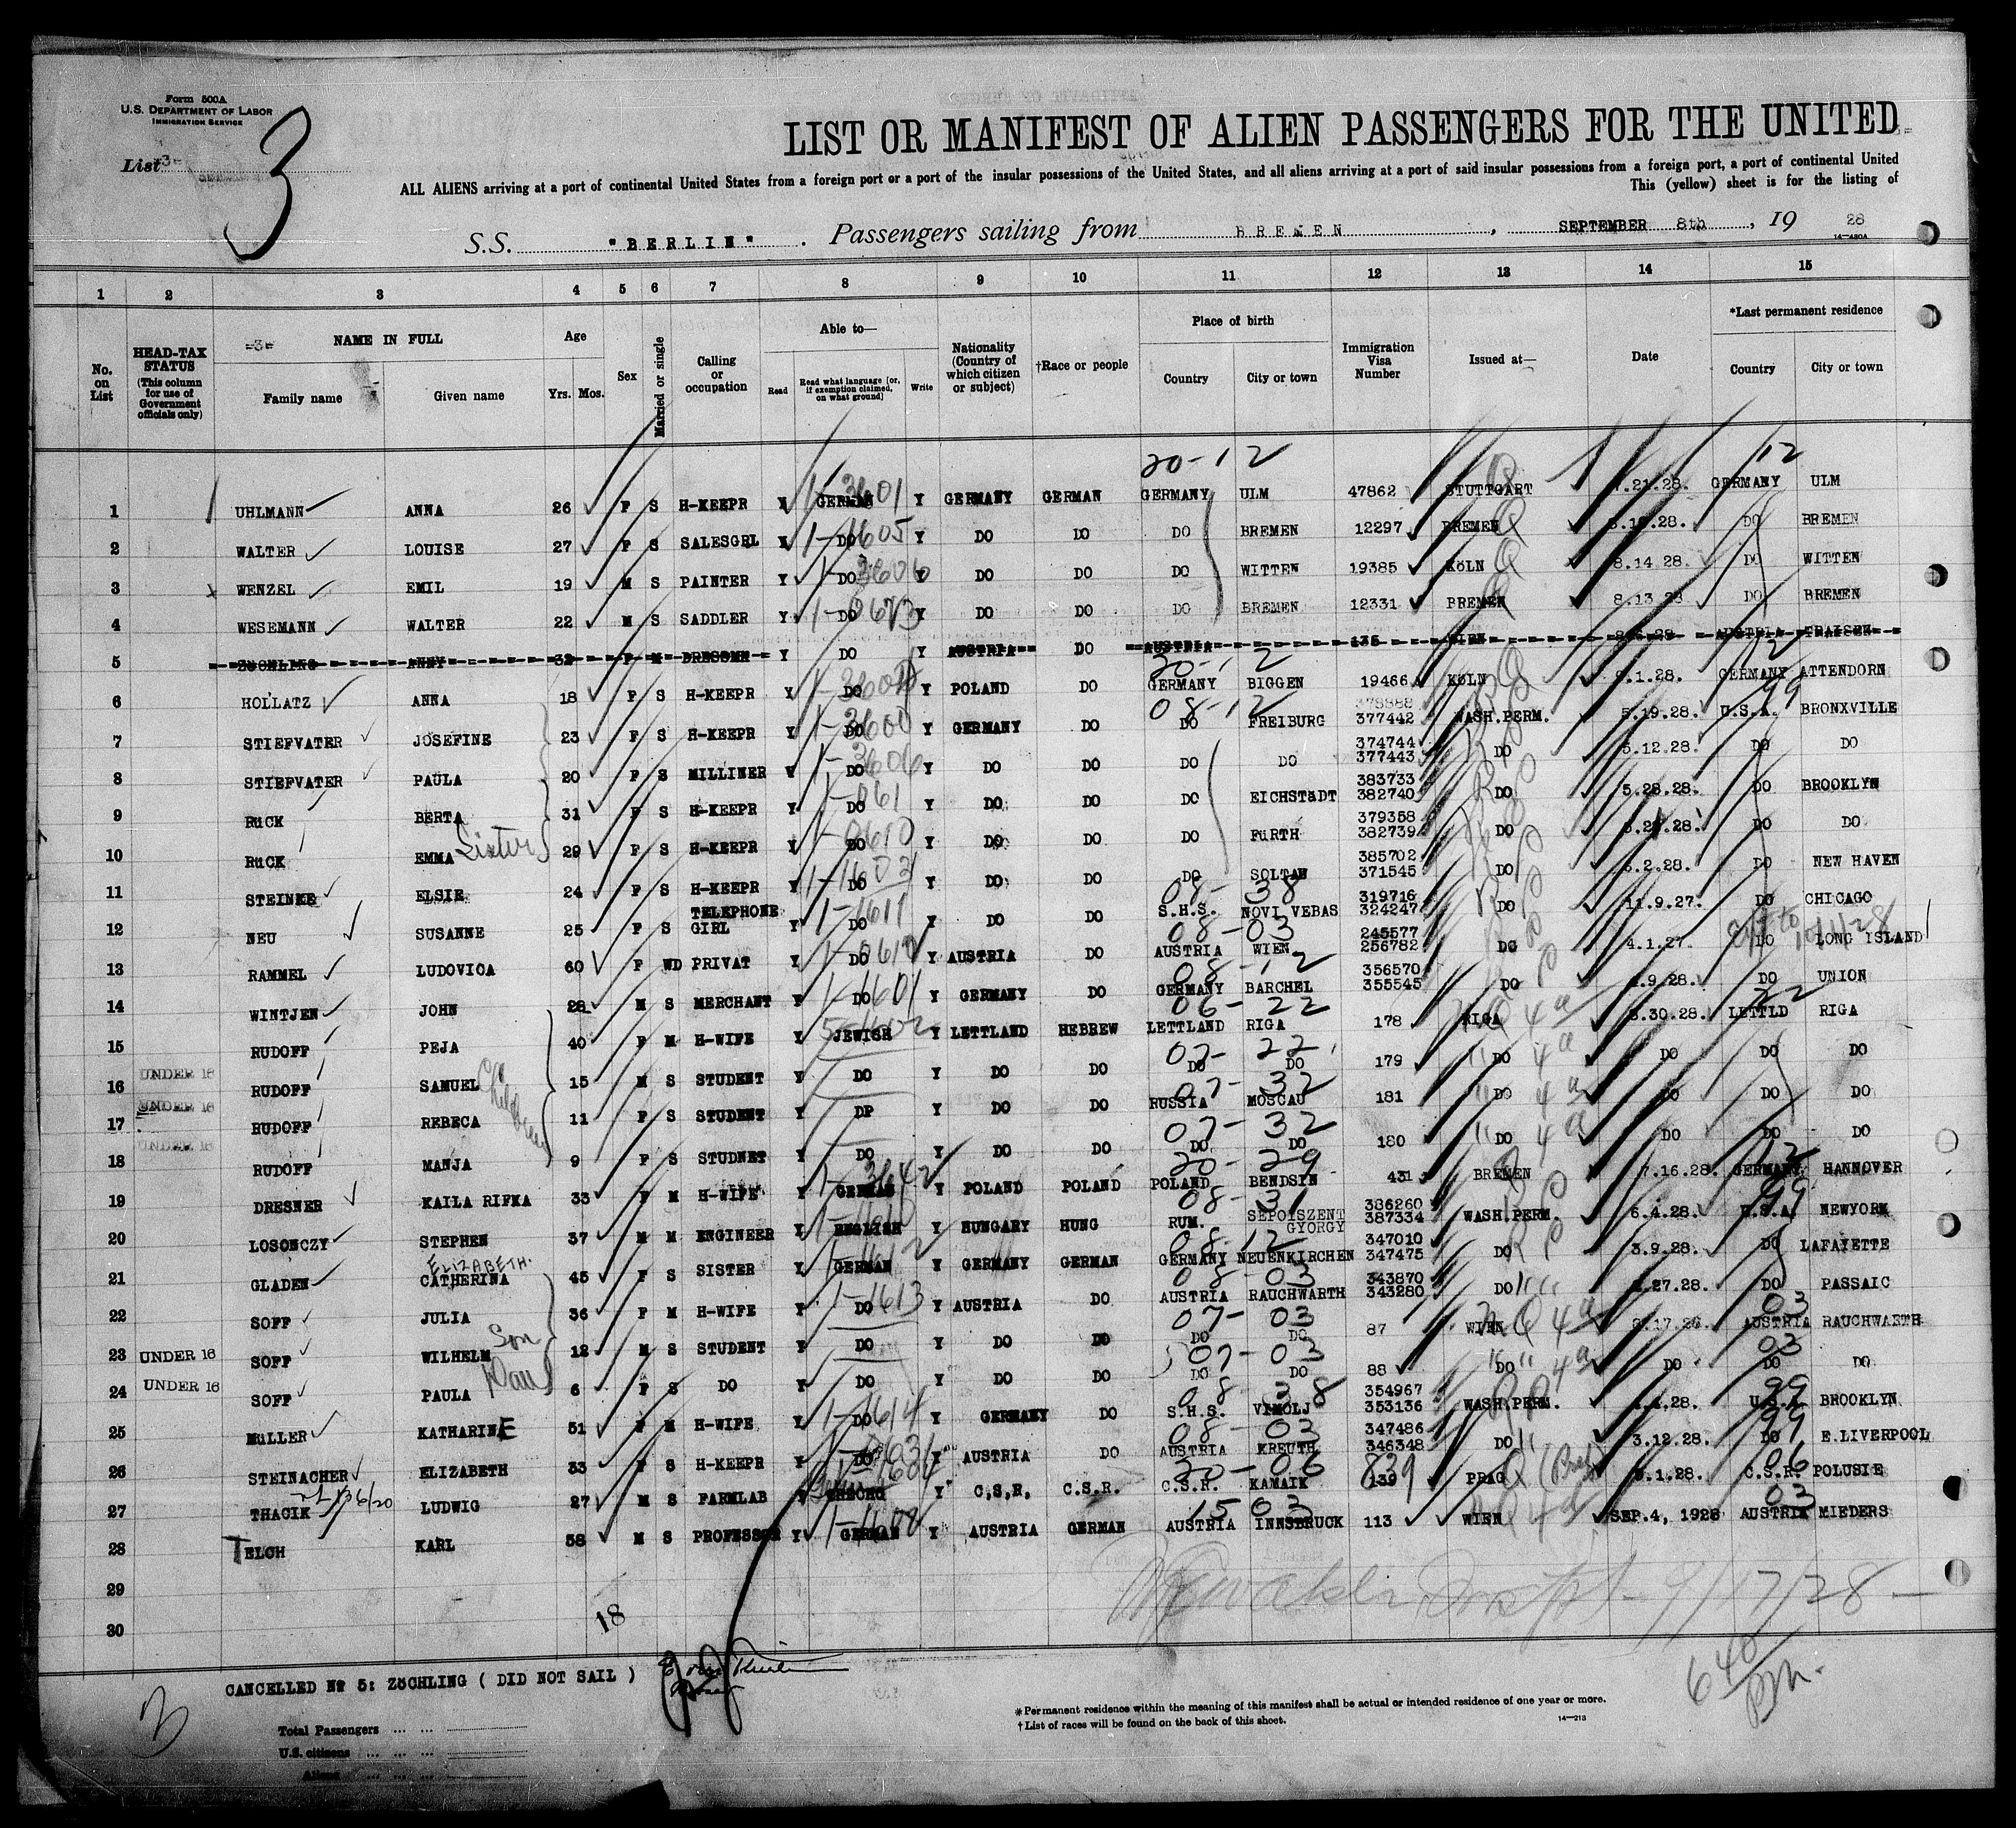 Form 500A
U.S. DEPARTMENT OF LABOR
IMMIGRATION SERVICE
List -3-
3
LIST OR MANIFEST OF ALIEN PASSENGERS FOR THE UNITED
ALL ALIENS arriving at a port of continental United States from a foreign port or a port of the insular possessions of the United States, and all aliens arriving at a port of said insular possessions from a foreign port, a port of continental United
This (yellow) sheet is for the listing of
S.S. "BERLIN". Passengers sailing from BREMEN, SEPTEMBER 8th, 19 28
14-430A
1 2 3 4 5 6 7 8 9 10 11 12 13 14 15
No. on List
HEAD-TAX STATUS (This column for use of Government officials only)
-3- NAME IN FULL
Family name Given name
Age Yrs. Mos.
Sex
Married or single
Calling or occupation
Able to—
Read Read what language [or, if exemption claimed, on what ground] Write
Nationality (Country of which citizen or subject)
†Race or people
Place of birth
Country City or town
Immigration Visa Number
Issued at—
Date
*Last permanent residence
Country City or town
20-12 12
1 UHLMANN ANNA 26 F S H-KEEPR Y GERMAN Y GERMANY GERMAN GERMANY ULM 47862 STUTTGART 7.21.28. GERMANY ULM
2 WALTER LOUISE 27 F S SALESGEL Y DO Y DO DO DO BREMEN 12297 BREMEN DO BREMEN
3 WENZEL EMIL 19 M S PAINTER Y DO Y DO DO DO WITTEN 19385 KöLN 8.14 28. DO WITTEN
4 WESEMANN WALTER 22 M S SADDLER Y DO Y DO DO DO BREMEN 12331 BREMEN 8.13 28 DO BREMEN
5 ZöCHLING ANNY 32 F M DRESSMR Y DO Y AUSTRIA DO AUSTRIA 135 WIEN AUSTRIA TRAISEN
20-12 12
6 HOLLATZ ANNA 18 F S H-KEEPR Y DO Y POLAND DO GERMANY BIGGEN 19466 KöLN 8.1.28. GERMANY ATTENDORN
08-12 378888 99
7 STIEFVATER JOSEFINE 23 F S H-KEEPR Y DO Y GERMANY DO DO FREIBURG 377442 WASH.PERM. 5.19.28. U.S.A. BRONXVILLE
374744
8 STIEFVATER PAULA 20 F S MILLINER Y DO Y DO DO DO DO 377443 DO 5.12.28. DO DO
383733
9 RüCK BERTA 31 F S H-KEEPR Y DO Y DO DO DO EICHSTäDT 382740 DO 5.28.28. DO BROOKLYN
379358
10 RüCK EMMA Sister 29 F S H-KEEPR Y DO Y DO DO DO FüRTH 382739 DO 5.28.28. DO DO
385702
11 STEINKE ELSIE 24 F S H-KEEPR Y DO Y DO DO DO SOLTAU 371545 DO 6.2.28. DO NEW HAVEN
08-38 319716
12 NEU SUSANNE 25 F S TELEPHONE GIRL Y DO Y DO DO S.H.S. NOVI VEBAS 324247 DO 11.9.27. DO CHICAGO
08-03 245577
13 RAMMEL LUDOVICA 60 F WD PRIVAT Y DO Y AUSTRIA DO AUSTRIA WIEN 256782 DO 4.1.27. DO LONG ISLAND
08-12 356570
14 WINTJEN JOHN 28 M S MERCHANT Y DO Y GERMANY DO GERMANY BARCHEL 355545 DO DO UNION
06-22 22
15 RUDOFF PEJA 40 F M H-WIFE Y JEWISH Y LETTLAND HEBREW LETTLAND RIGA 178 RIGA LETTLD RIGA
07-22
16 UNDER 16 RUDOFF SAMUEL Children 15 M S STUDENT Y DO Y DO DO DO DO 179 DO DO DO DO
07-32
17 UNDER 16 RUDOFF REBECA 11 F S STUDENT Y DP Y DO DO RUSSIA MOSCAU 181 DO DO DO DO
07-32
18 UNDER 16 RUDOFF MANJA 9 F S STUDNET Y DO Y DO DO DO DO 180 DO DO DO DO
20-29 12
19 DRESNER KAILA RIFKA 33 F M H-WIFE Y GERMAN Y POLAND POLAND POLAND BENDSIN 431 BREMEN 7.16.28. GERMANY HANNOVER
08-31 386260 99
20 LOSONCZY STEPHEN 37 M M ENGINEER Y ENGLISH Y HUNGARY HUNG RUM. SEPOISZENT GYORGY 387334 WASH.PERM. 6.4.28. U.S.A. NEWYORK
08-12 347010
21 GLADEN ELIZABETH. CATHERINA 45 F S SISTER Y GERMAN Y GERMANY GERMAN GERMANY NEUENKIRCHEN 347475 DO 3.9.28. DO LAFAYETTE
08-03 343870
22 SOFF JULIA 36 F M H-WIFE Y DO Y AUSTRIA DO AUSTRIA RAUCHWARTH 343280 DO 2.27.28. DO PASSAIC
07-03 03
23 UNDER 16 SOFF WILHELM Son 12 M S STUDENT Y DO Y DO DO DO DO 87 WIEN AUSTRIA RAUCHWARTH
07-03 03
24 UNDER 16 SOFF PAULA Dau 6 F S DO Y DO Y DO DO DO DO 88 DO DO DO DO
08-38 354967 99
25 MüLLER KATHARINE 51 F M H-WIFE Y DO Y GERMANY DO S.H.S. VIMOLJ 353136 WASH.PERM. U.S.A. BROOKLYN
08-03 347486 99
26 STEINACHER ELIZABETH 33 F S H-KEEPR Y DO Y AUSTRIA DO AUSTRIA KREUTH 346348 DO 3.12.28. DO E.LIVERPOOL
20-06 839 06
27 THACIK LUDWIG 27 M S FARMLAB Y CHECHO Y C,S,R, C.S.R. C.S.R. KAMAIK 139 PRAG C.S.R. POLUSIE
15 03 03
28 TELCH KARL 58 M S PROFESSOR Y GERMAN Y AUSTRIA GERMAN AUSTRIA INNSBRUCK 113 WIEN SEP.4, 1928 AUSTRIA MIEDERS
29
30
18
9/17/28
CANCELLED No 5: ZöCHLING ( DID NOT SAIL )
640
3
Total Passengers ... ...
U.S. citizens ... ... ...
Aliens ... ... ...
*Permanent residence within the meaning of this manifest shall be actual or intended residence of one year or more.
†List of races will be found on the back of this sheet.
14-213